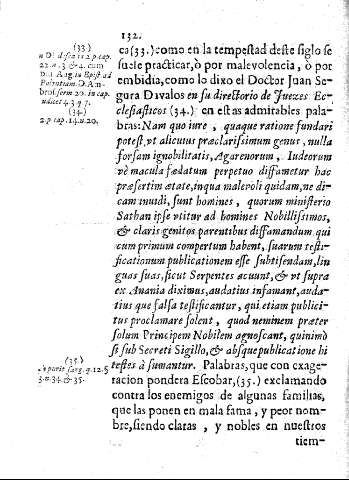 132.
(33)
22.n.3 & 4. cum
D. Aug. in Epist ad
(34)
2.p cap. 14.n.20.
(35)
3.n.34.& 35.
ca(33.):como en la tempestad deste siglo se
suele practicar, ò por malevolencia, ò por
embidia, como lo dixo el Doctor Juan Se-
gura Davalos en su directorio de Juezes Ec-
clesiasticos (34.) en estas admirables pala-
bras: Nam quo iure, quaque ratione fundari
potest, vt alicuius præclarissimum genus, nulla
forsam ignobilitatis, Agarenorum, Iudeorum
vè macula fœdatum perpetuo diffametur hac
præsertim ætate, in qua malevoli quidam, ne di-
cam inuidi, sunt homines, quorum ministerio
Sathan ipse vtitur ad homines Nobilissimos,
& claris genitos parentibus diffamandum qui
cum primum compertum habent, suarum testi-
ficationum publicationem esse subtisendam, lin
guas suas, sicut Serpentes acuunt, & vt supra
ex Anania diximus, audatius infamant, auda-
tius que falsa testificantur, qui etiam publici-
tus proclamare solent, quod neminem præter
solum Principem Nobilem agnoscant, quinimò
si sub Secreti Sigillo, & absque publicatione hi
testes à sumantur. Palabras, que con exage-
racion pondera Escobar, (35.) exclamando
contra los enemigos de algunas familias,
que las ponen en mala fama, y peor nom-
bre, siendo claras, y nobles en nuestros
tiem-